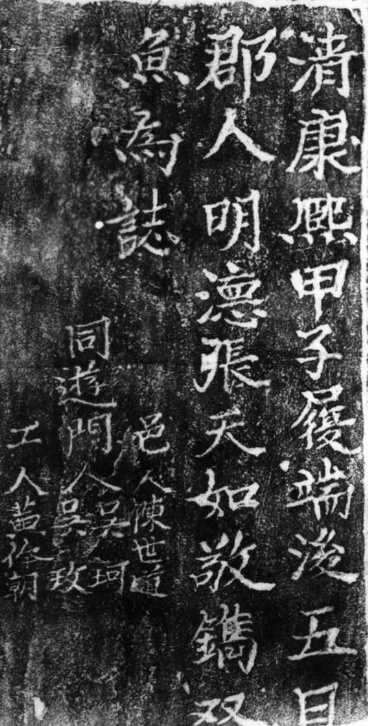 清康熙甲子履端後五日
郡人明德張天如敬鐫双
魚為誌
邑人陳世道
同遊門人吳珂
吳玫
工人黃朝